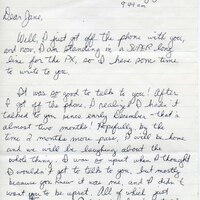 9:44 am
Dear Jane,
Well, I just got off the phone with you,
and now I am standing in a SUPER long
line for the PX, so I have some time
to write to you.
It was so good to talk to you! After
I got off the phone, I realized I haven't
talked to you since early December - that's
almost two months! Hopefully by the
time 2 months more pass, I will be home
and we will be laughing about the
whole thing. I was so upset when I thought
I wouldn't get to talk to you, but mostly
because you knew it was me, and I didn't
want you to be upset. All of which just